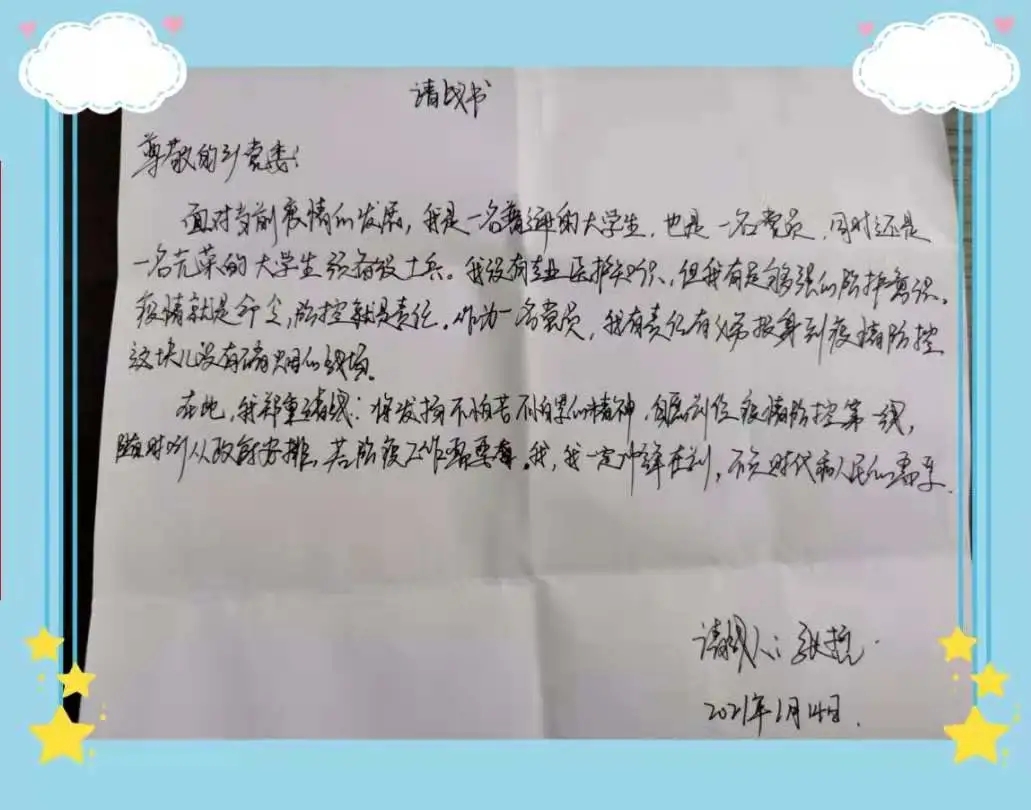 请战书
尊敬的引党委:
面对当前疫情的发展,我是一名普通的大学生,也是一名党员,同时还是
一名光荣的大学生预备役士兵。我没有专业医护知识,但我有足够强的防护意识。
疫情就是命令,防控就是责任。作为一名党员,我有责任有义务投身到疫情防控
这块儿没有硝烟的战场。
在此,我郑重请战:将发扬不怕苦不怕累的精神,自愿到位疫情防控第一线,
随时听从政府安排,若防疫工作需要我,我一定冲锋在前,不负时代和人民的需要.
请战人:张
2021年1月14日.